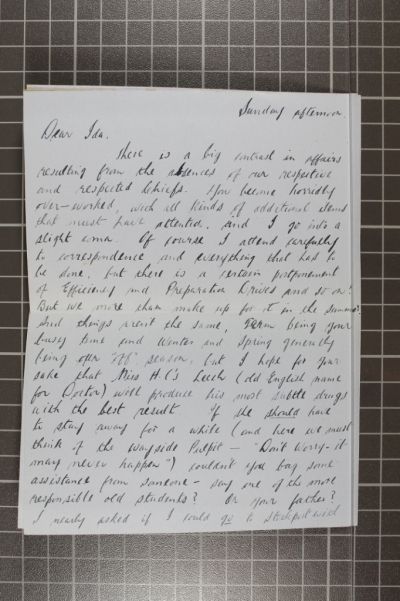 Sunday afternoon.
Dear Ida.
There is a big contrast in affairs
resulting from the absences of our respective
and respected Chiefs. You become horridly
over-worked, with all kinds of additional items
that must have attention, and I go into a
slight coma. Of course I attend carefully
to correspondence and everything that has to
be done, but there is a certain postponement
of Efficiency and Preparation Drives and so on!
But we more than make up for it in the summer.
And things aren't the same, Term being your
busy time and Winter and Spring generally
being our "off" season, but I hope for your
sake that Miss H.C's Leech (old English name
for Doctor) will produce his most subtle drugs
with the best result. If she should have
to stay away for a while (and here we must
think of the Wayside Pulpit - "Don't worry - it
may never happen") couldn't you bag some
assistance from someone - say one of the more
responsible old students? Or your father?
I nearly asked if I could go to